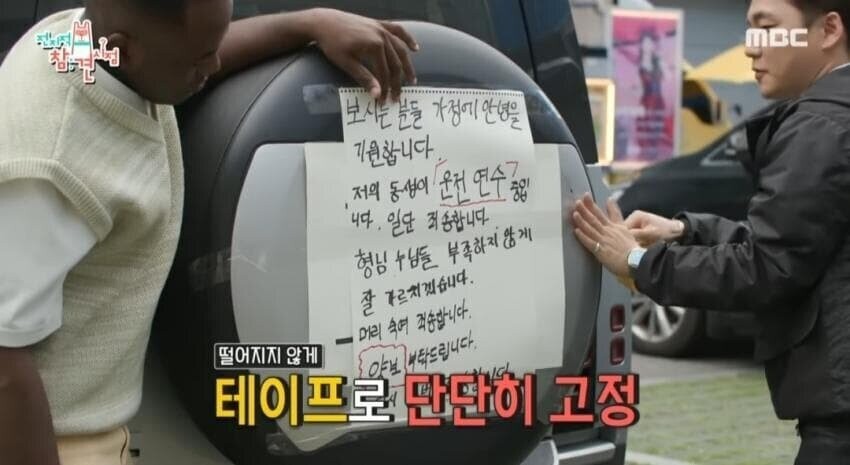 전지적
참견
시점
MBC
보시는 분들 가정에 안녕을
기원합니다
저의 동생이 "운전 연수" 중입
니다. 일단 죄송합니다.
형님 누님들 부족하지 않게
잘 가르치겠습니다.
머리 숙여 죄송합니다.
양보 부탁드립니다.
떨어지지 않게
테이프로 단단히 고정